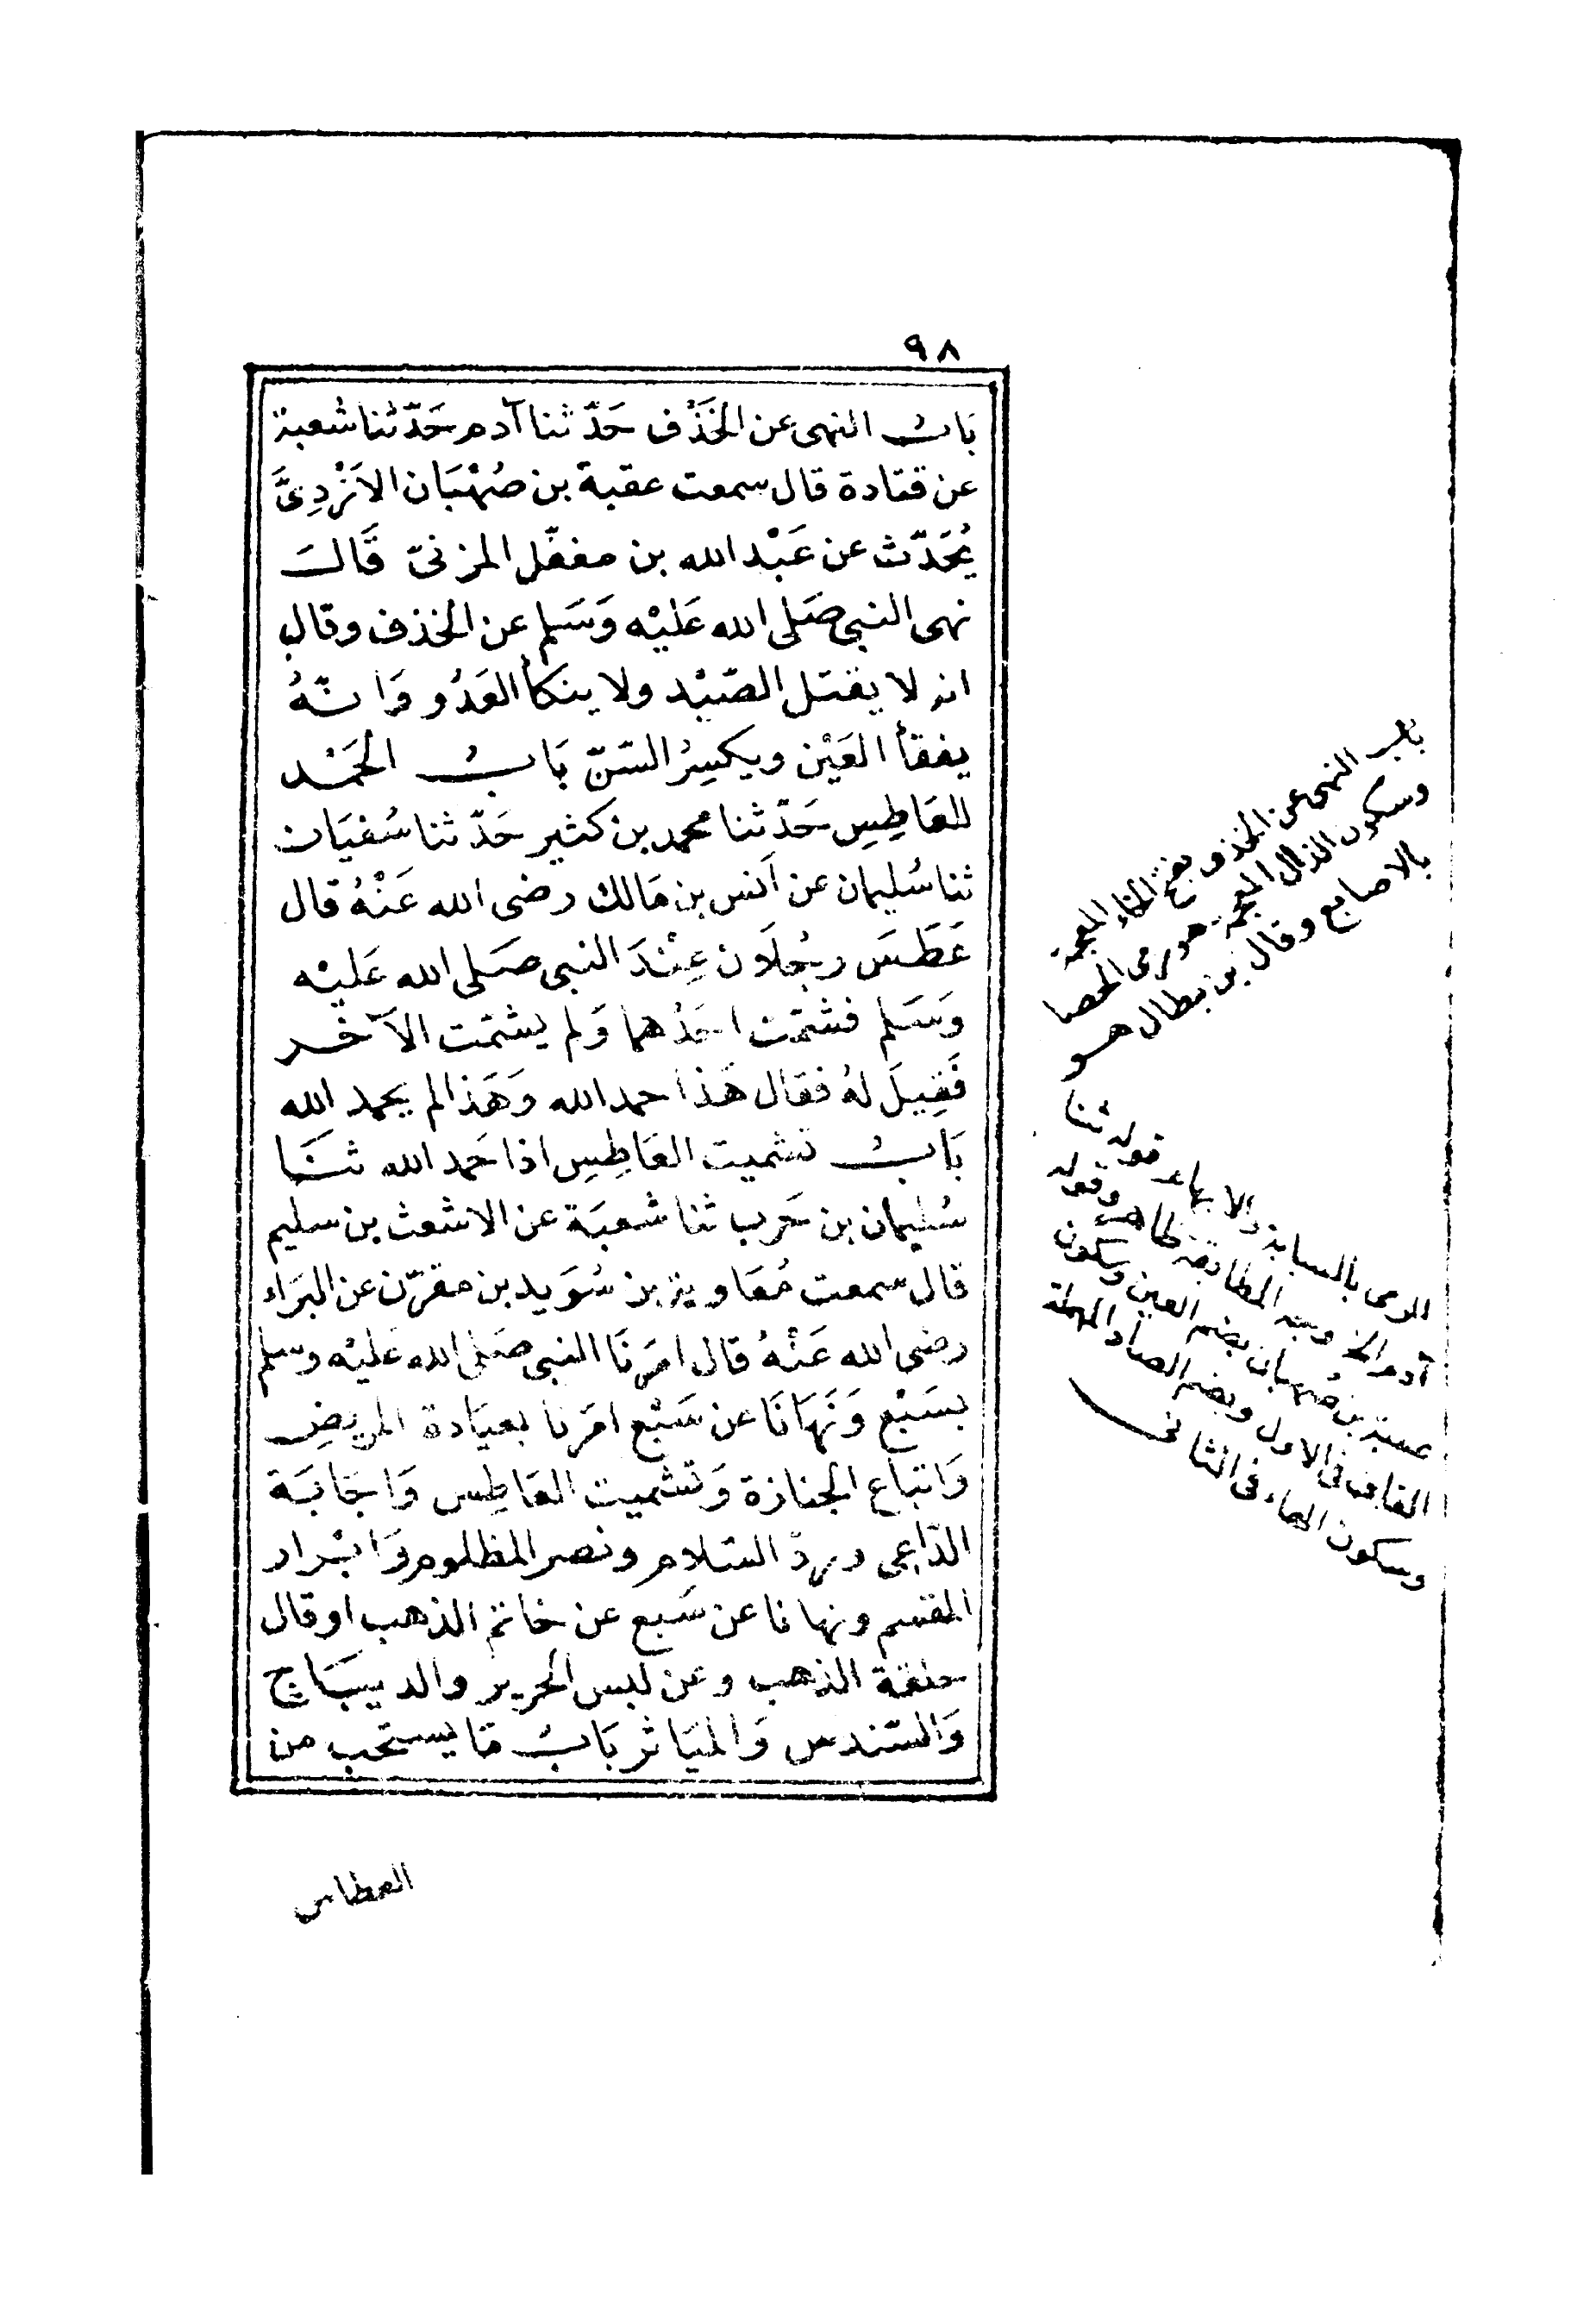 ٩٨
بَابُ النهى عن الخَذْف حَدّثنا آدم حَدّثنا شُعبة
عن قتادة قال سمعت عقبة بن صُهْبَان الاَزْدِىَّ
يُحَدّث عن عَبْد الله بن مغفّل المزنىّ قَالَ
نهى النبى صَلى الله عَليْه وَسَلم عن الخذف وقال
انه لا يقتل الصّيْد ولا ينكأ العَدُو وَانّهُ
يفقأ العَيْن ويكسِرُ السّنّ بَابُ الحَمْد
للعَاطِسِ حَدّثنا محمد بن كثير حَدّثنا سُفيَان
ثنا سُليمان عن اَنس بن مَالك رضى الله عَنْهُ قال
عَطَسَ رجُلَان عِنْدَ النبى صَلى الله عَليْه
وَسَلم فشمّت احَدُهما وَلم يشمّت الآخر
فَقِيلَ لهُ فقال هَذا حمد الله وَهَذا لم يحمد الله
بَابُ تشميت العَاطِسِ اذا حَمد الله ثنَا
سُليمان بن حَرب ثنا شعبَة عن الاشعث بن سليم
قال سمعت مُعَاوية بن سُوَيد بن مقرّن عن البَرَاء
رضى الله عَنْهُ قال امَرنَا النبى صَلى الله عَليْه وسلم
بسَبْع وَنَهَانَا عن سَبْع امَرنا بعيَادة المريضِ
وَاتباع الجنازة وَتشميت العَاطِس وَاجَابَة
الدّاعِى وردّ السّلام ونصر المظلوم وَابْرار
المقسم ونهانا عن سَبع عن خاتم الذهب او قال
حلقة الذهب وعن لبس الحرير والديبَاج
وَالسّندس وَالميَاثر بَابُ مَا يستحب من
العطاس
باب النهى عن الخذف بفتح الخاء المعجمة
وسكون الذال المعجمة هو رمى الحصا
بالاصابع وقال بن بطال هو
الرمى بالسبابة والابهام قوله ثنا
آدم الخ وجه المطابقة ظاهر وقوله
عقبة بن صُهبان بضم العين وسكون
القاف فى الاول وبضم الصاد المهملة
وسكون الهاء فى الثانى